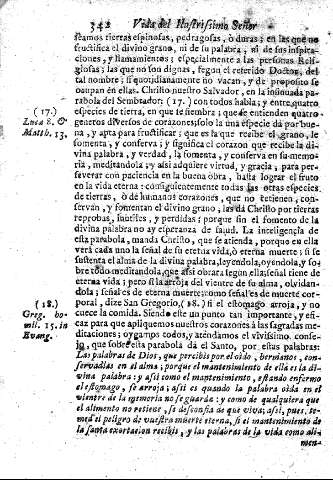 342 Vida del Ilustrissimo Señor
seamos tierras espinosas, pedragosas, ò duras; en las que no
fructifica el divino grano, ni de su palabra, ni de sus inspira-
ciones, y llamamientos; especialmente a las personas Reli-
giosas; las que no son dignas, segun el referido Doctor, del
tal nombre; si quotidianamente no vacan, y de proposito se
ocupan en ellas. Christo nuestro Salvador, en la insinuada pa-
rabola del Sembrador: (17.) con todos habla; y entre quatro
especies de tierra, en que se siembra; que se entienden quatro
generos diversos de corazones; solo la una especie dà por bue-
na, y apta para fructificar; que es la que recibe el grano, le
fomenta, y conserva; y significa el corazon que recibe la di-
vina palabra, y verdad, la fomenta, y conserva en su memo-
ria, meditandola; y assi adquiere virtud, y gracia, para per-
severar con paciencia en la buena obra, hasta lograr el fruto
en la vida eterna: consiguientemente todas las otras especies
de tierras, ò de humanos corazones, que no retienen, con-
servan, y fomentan el divino grano, las dà Christo por tierras
reprobas, inutiles, y perdidas; porque sin el fomento de la
divina palabra no ay esperanza de salud. La inteligencia de
esta parabola, manda Christo, que se atienda, porque en ella
verà cada uno la señal de su eterna vida, ò eterna muerte; si se
sustenta el alma de la divina palabra, leyendola, oyendola, y so-
bre todo meditandola, que assi obrara segun ella; señal tiene de
eterna vida; pero si la arroja del vientre de su alma, olvidan-
dola; señales de eterna muerte; como señal es de muerte cor-
poral, dize San Gregorio, (18.) si el estomago arroja, y no
cuece la comida. Siendo este un punto tan importante, y efi-
caz para que apliquemos nuestros corazones à las sagradas me-
ditaciones; oygamos todos, y atendamos el vivissimo conse-
jo, que sobre esta parabola da el Santo, por estas palabras:
Las palabras de Dios, que percibis por el oido, hermanos, con-
servadlas en el alma; porque el mantenimiento de ella es la di-
vina palabra: y assi como el mantenimiento, estando enfermo
el estomago, se arroja; assi es quando la palabra oida en el
vientre de la memoria no se guarda: y como de qualquiera que
el alimento no retiene, se desconfia de que viva; assi, pues, te-
med el peligro de vuestra muerte eterna, si el mantenimiento de
la santa exortacion recibis, y las palabras de la vida como ali-
men-
(17.)
Luca 8. &
Matth. 13.
(18.)
Greg. ho-
mil. 15. in
Evang.